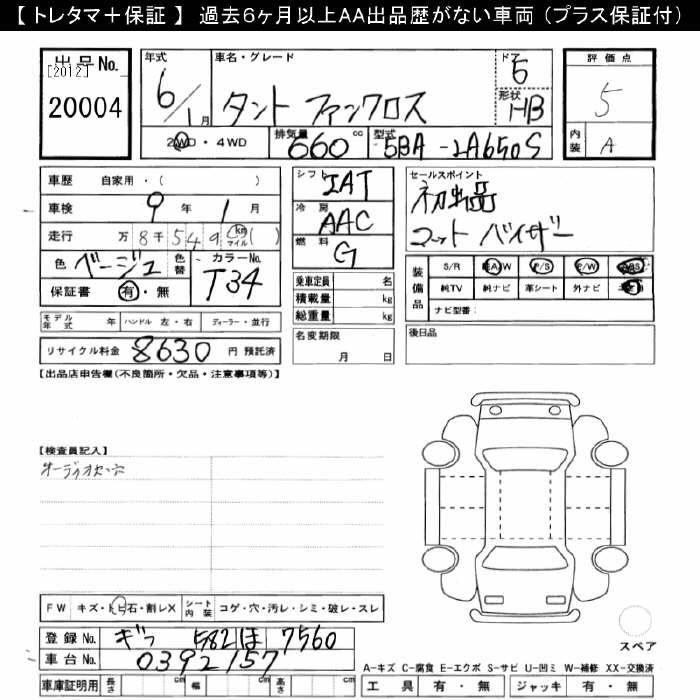 【 トレタマ＋保証 】 過去６ヶ月以上ＡＡ出品歴がない車両（プラス保証付）
出品No.
[2012]
20004
年式 6/1月
車名・グレード
タント ファンクロス
ドア 5
形状 HB
評価点 5
内装 A
2WD・4WD
排気量 660 cc
型式 5BA-LA650S
車歴 自家用・( )
車検 9年 1月
走行 万8千549 km マイル ( )
色 ベージュ
色替
カラーNo. T34
保証書 有・無
モデル年式 年 ハンドル 左・右 ディーラー・並行
リサイクル料金 8630 円 預託済
シフト IAT
冷房 AAC
燃料 G
乗車定員 名
積載量 kg
総重量 kg
名変期限
月 日
セールスポイント
初出品
マット バイザー
装備品
S/R A/W P/S P/W ABS
純TV 純ナビ 革シート 外ナビ
ナビ型番：
後日品
【出品店申告欄（不良箇所・欠品・注意事項等）】
【検査員記入】
オーディオ欠・穴
FW キズ・トビ石・割レX
シート内装 コゲ・穴・汚レ・シミ・破レ・スレ
登録No. ギフ 582 ほ 7560
車台No. 0392157
車庫証明用 長さ cm 幅 cm 高さ cm
スペア
A-キズ C-腐食 E-エクボ S-サビ U-凹ミ W-補修 XX-交換済
工具 有・無 ジャッキ 有・無